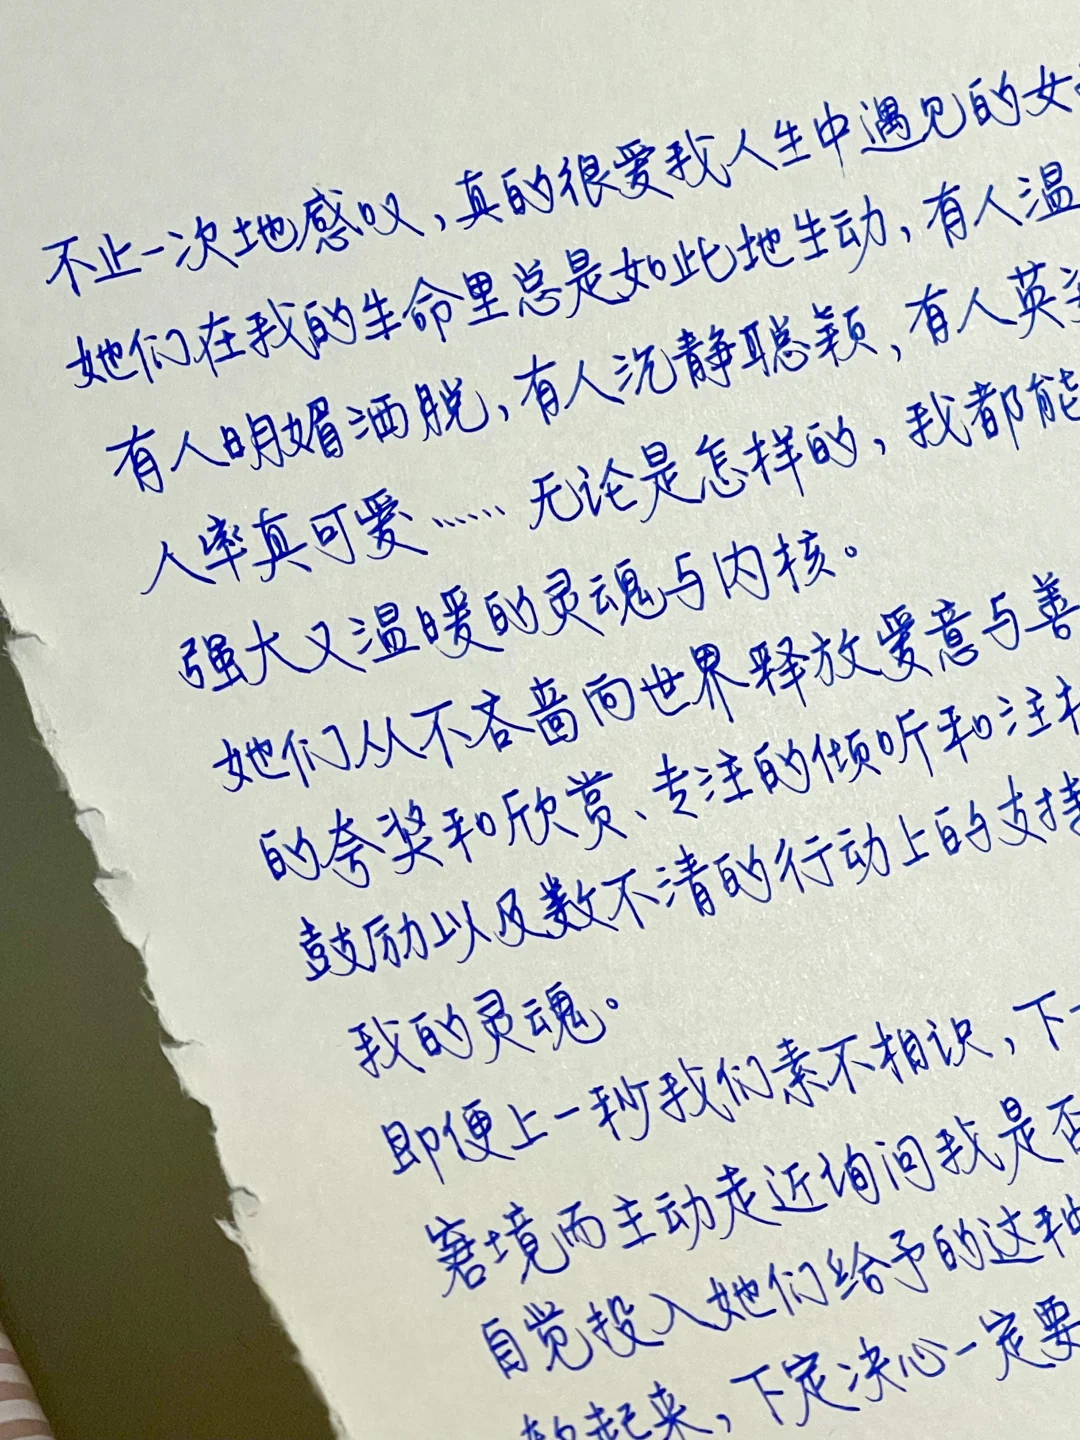 不止一次地感叹，真的很爱我人生中遇见的女
她们在我的生命里总是如此地生动，有人温
有人明媚洒脱，有人沉静聪颖，有人英姿
人率真可爱……无论是怎样的，我都能
强大又温暖的灵魂与内核。
她们从不吝啬向世界释放爱意与善
的夸奖和欣赏、专注的倾听和注
鼓励以及数不清的行动上的支持
我的灵魂。
即便上一秒我们素不相识，下
窘境而主动走近询问我是否
自觉投入她们给予的这种
起来，下定决心一定要